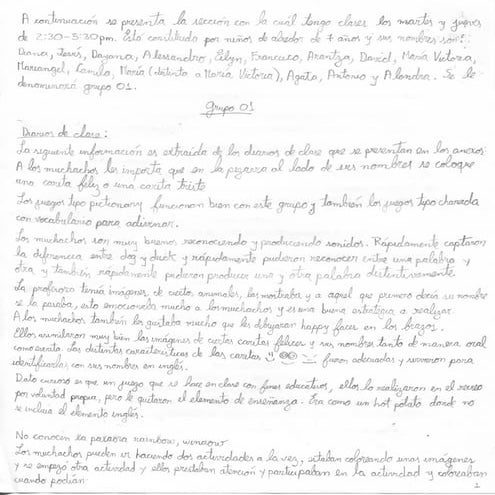 A continuación se presenta la sección con la cuál tengo clases los martes y jueves
de 2:30-5:30pm. Está constituido por niños de alrededor de 7 años y sus nombres son:
Diana, Jesús, Dayana, Alessandro, Eilyn, Francisco, Arantza, David, María Victoria,
Mariangel, Camila, María (distinta a María Victoria), Agata, Antonio y Alondra. Se le
denominará grupo 01.
Grupo 01
Diarios de clase:
La siguiente información es extraída de los diarios de clase que se presentan en los anexos:
A los muchachos les importa que en la pizarra al lado de sus nombres se coloque
una carita feliz o una carita triste
Los juegos tipo pictionary funcionan bien con este grupo y también los juegos tipo charada
con vocabulario para adivinar.
Los muchachos son muy buenos reconociendo y produciendo sonidos. Rápidamente captaron
la diferencia entre dog y duck y rápidamente pudieron reconocer entre una palabra y
otra y también rápidamente pudieron producir una y otra palabra distintivamente
La profesora tenía imágenes de ciertos animales, los mostraba y a aquel que primero decía su nombre
se la pasaba, esto emocionaba mucho a los muchachos y es una buena estrategia a realizar.
A los muchachos también les gustaba mucho que les dibujaran happy faces en los brazos.
Ellos asimilaron muy bien las imágenes de ciertas caritas felices y sus nombres tanto de manera oral
como escrita. Las distintas características de las caritas fueron adecuadas y sirvieron para
identificarlas con sus nombres en inglés.
Dato curioso es que un juego que se hace en clase con fines educativos, ellos lo realizaron en el receso
por voluntad propia, pero le quitaron el elemento de enseñanza. Era como un hot potato donde no
se incluía el elemento inglés.
No conocen la palabra rainbow,
Los muchachos pueden ir haciendo dos actividades a la vez, estaban coloreando unas imágenes
y se empezó otra actividad y ellos prestaban atención y participaban en la actividad y coloreaban
cuando podían
1